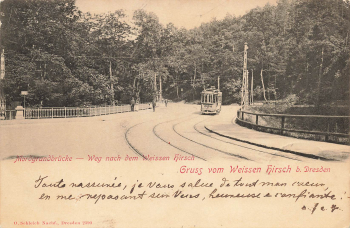 Mordgrundbrücke — Weg nach dem Weissen Hirsch
Gruss vom Weissen Hirsch b. Dresden
Toute rassurée, je vous salue de tout mon cœur,
en me reposant sur Vous, heureuse e confiante.